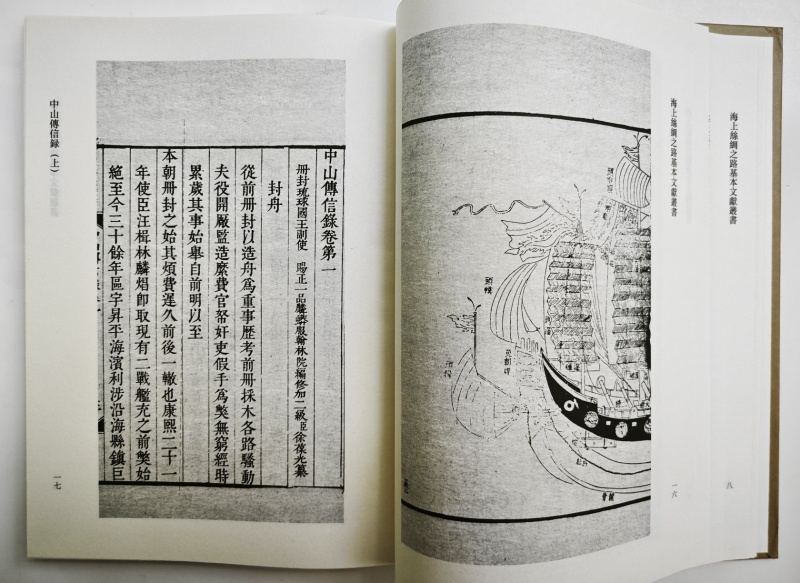 海上絲綢之路基本文獻叢書
八
海上絲綢之路基本文獻叢書
一六
中山傳信錄卷第一
冊封琉球國王副使　賜正一品麟蟒服翰林院編修加二級臣徐葆光纂
封舟
從前冊封以造舟爲重事歷考前冊採木各路騷動
夫役開厰監造糜費官帑奸吏假手爲獘無窮經時
累歲其事始舉自前明以至
本朝冊封之始其煩費遲久前後一轍也康熙二十一
年使臣汪楫林麟焻卽取現有二戰艦充之前獘始
絕至今三十餘年區宇昇平海濱利涉沿海縣鎮巨
中山傳信録（上）
一七